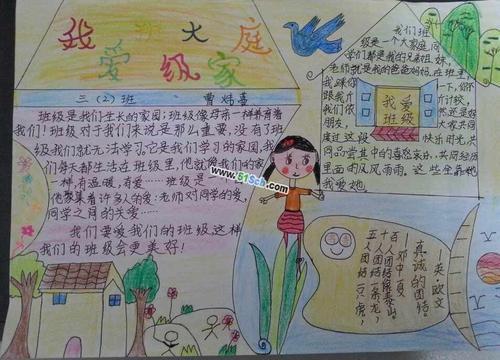 我爱班级大家庭
三(2)班 曹炜喜
班级是我们生长的家园;班级像母亲一样养育着
我们!班级对于我们来说是那么重要,没有了班
级我们就无法学习,它是我们学习的家园,我
们每天都生活在班级里,他就像我们的家
一样,有温暖,有爱……班级是
他聚集着许多人的爱:老师对同学的爱,
同学之间的关爱……
我们要爱我们的班级,这样
我们的班级会更美好!
www.51Sch.com
我们班
级是一个大家庭,同
学们都是我的兄弟姐妹,
老师就是我的爸爸妈妈,在班里
我爱
班级
度过这段 快乐时光,共同
同品尝其中的喜怒哀乐,共同经历
里面的风风雨雨,这些全靠她
我爱她。
五人团结一只虎,
十人团结一条龙,
百人团结像泰山
邓中夏
真诚的团结
英欧文